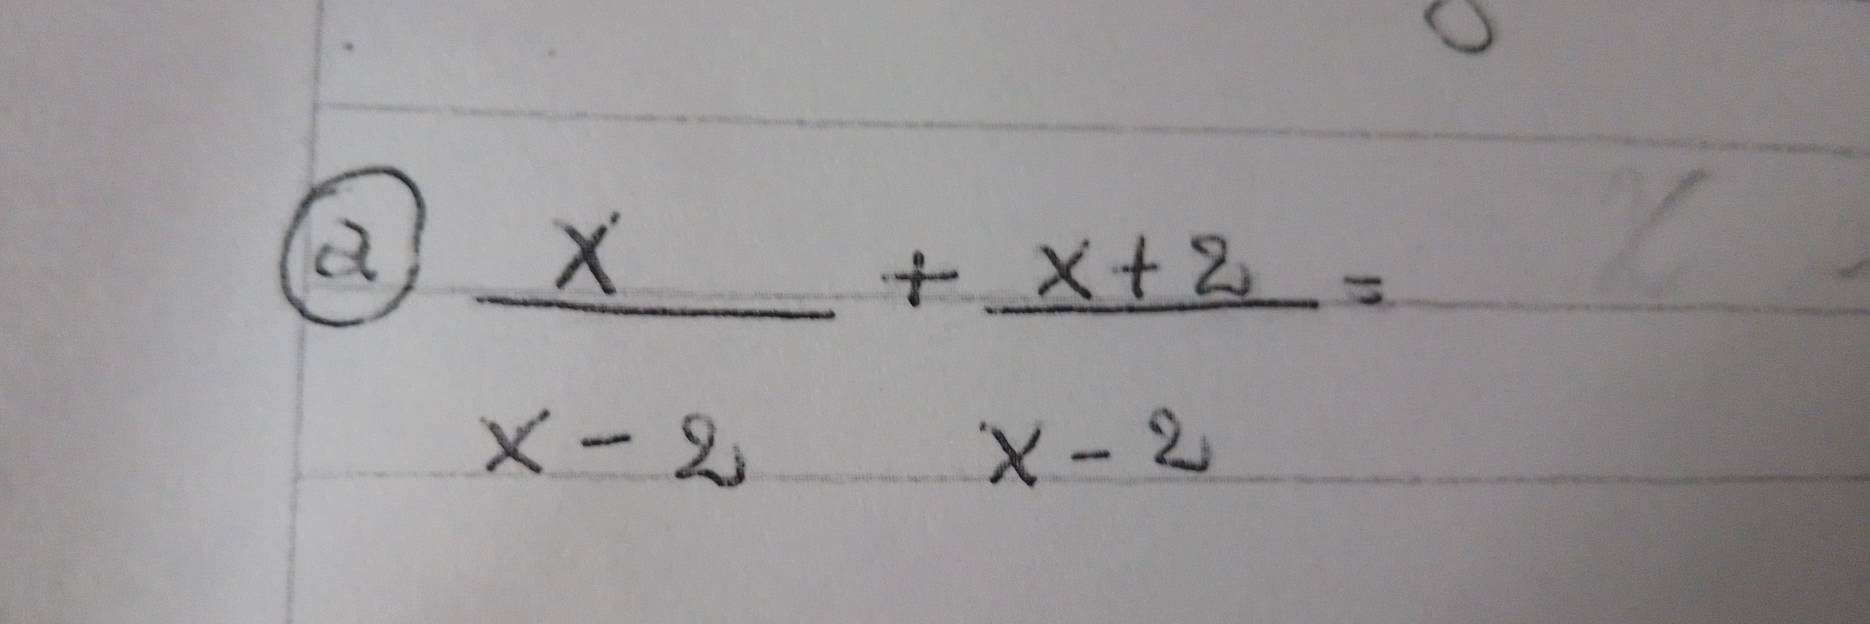 a x/(x-2) + x+2/(x-2) =